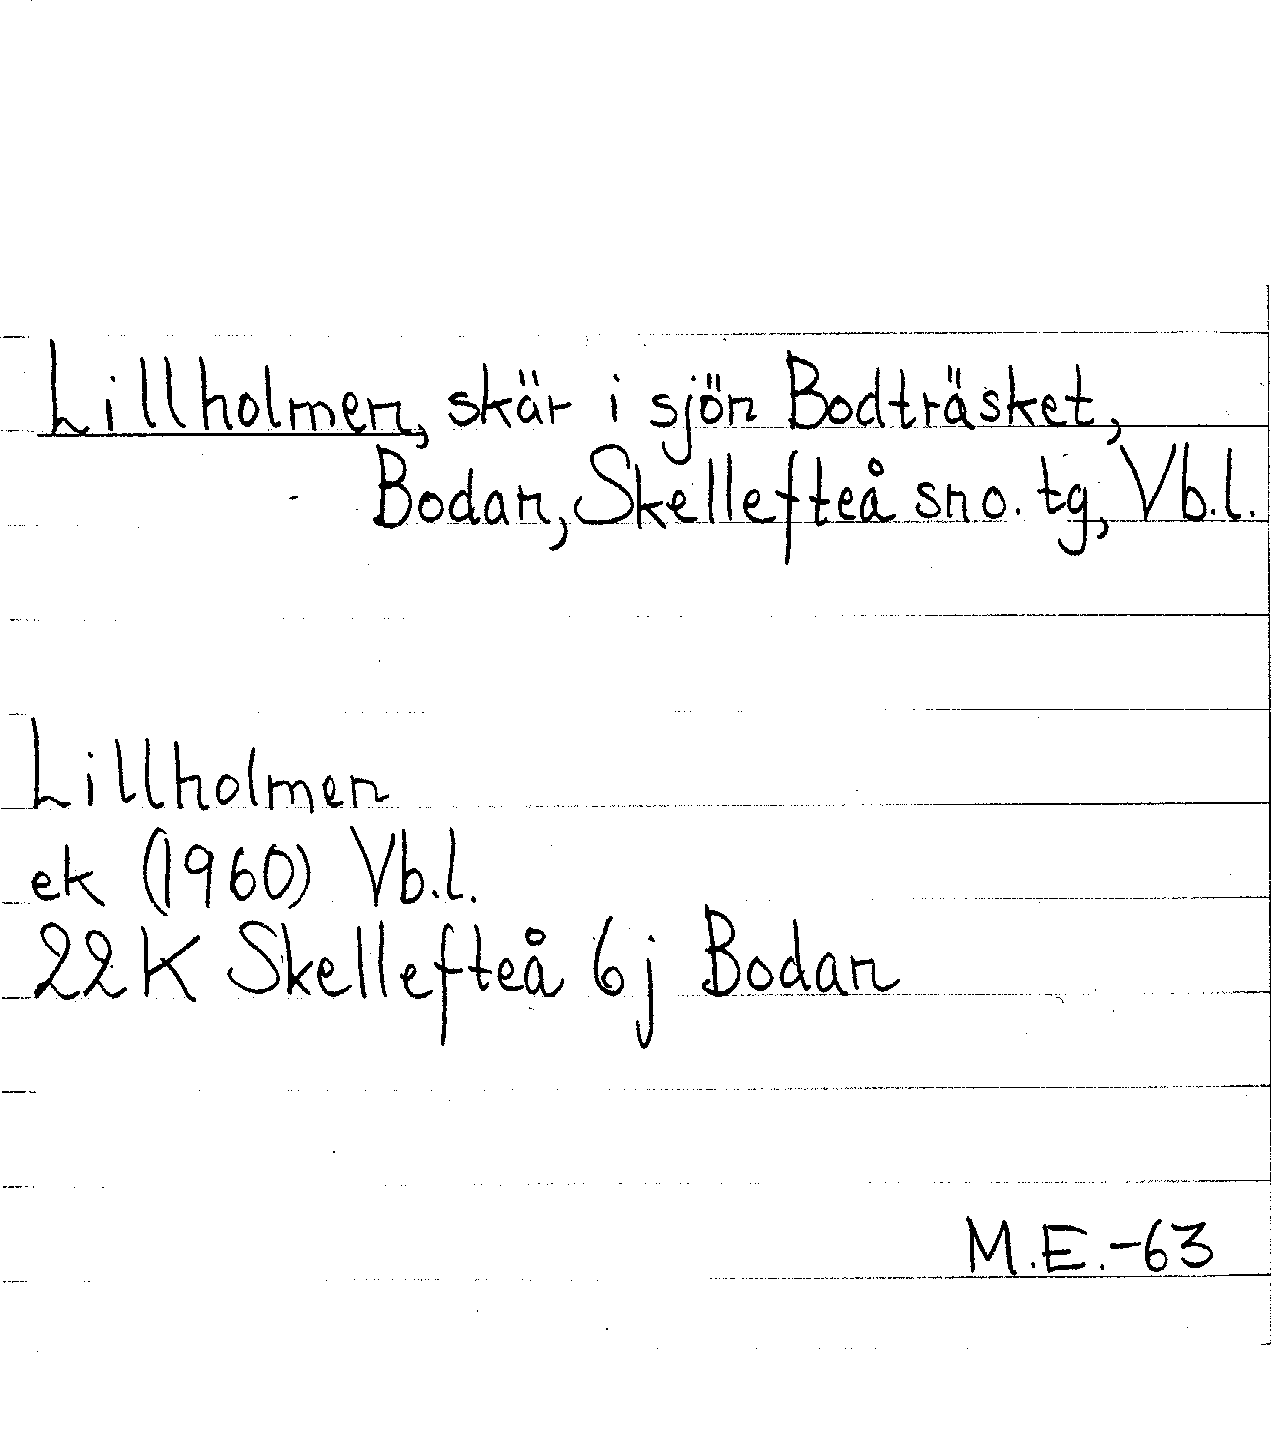 Lillholmen, skär i sjön Bodträsket,
Bodan, Skellefteå sno. tg, Vb.l.
Lillholmen
ek (1960) Vb.l.
22K Skellefteå 6j Bodan
M.E.-63